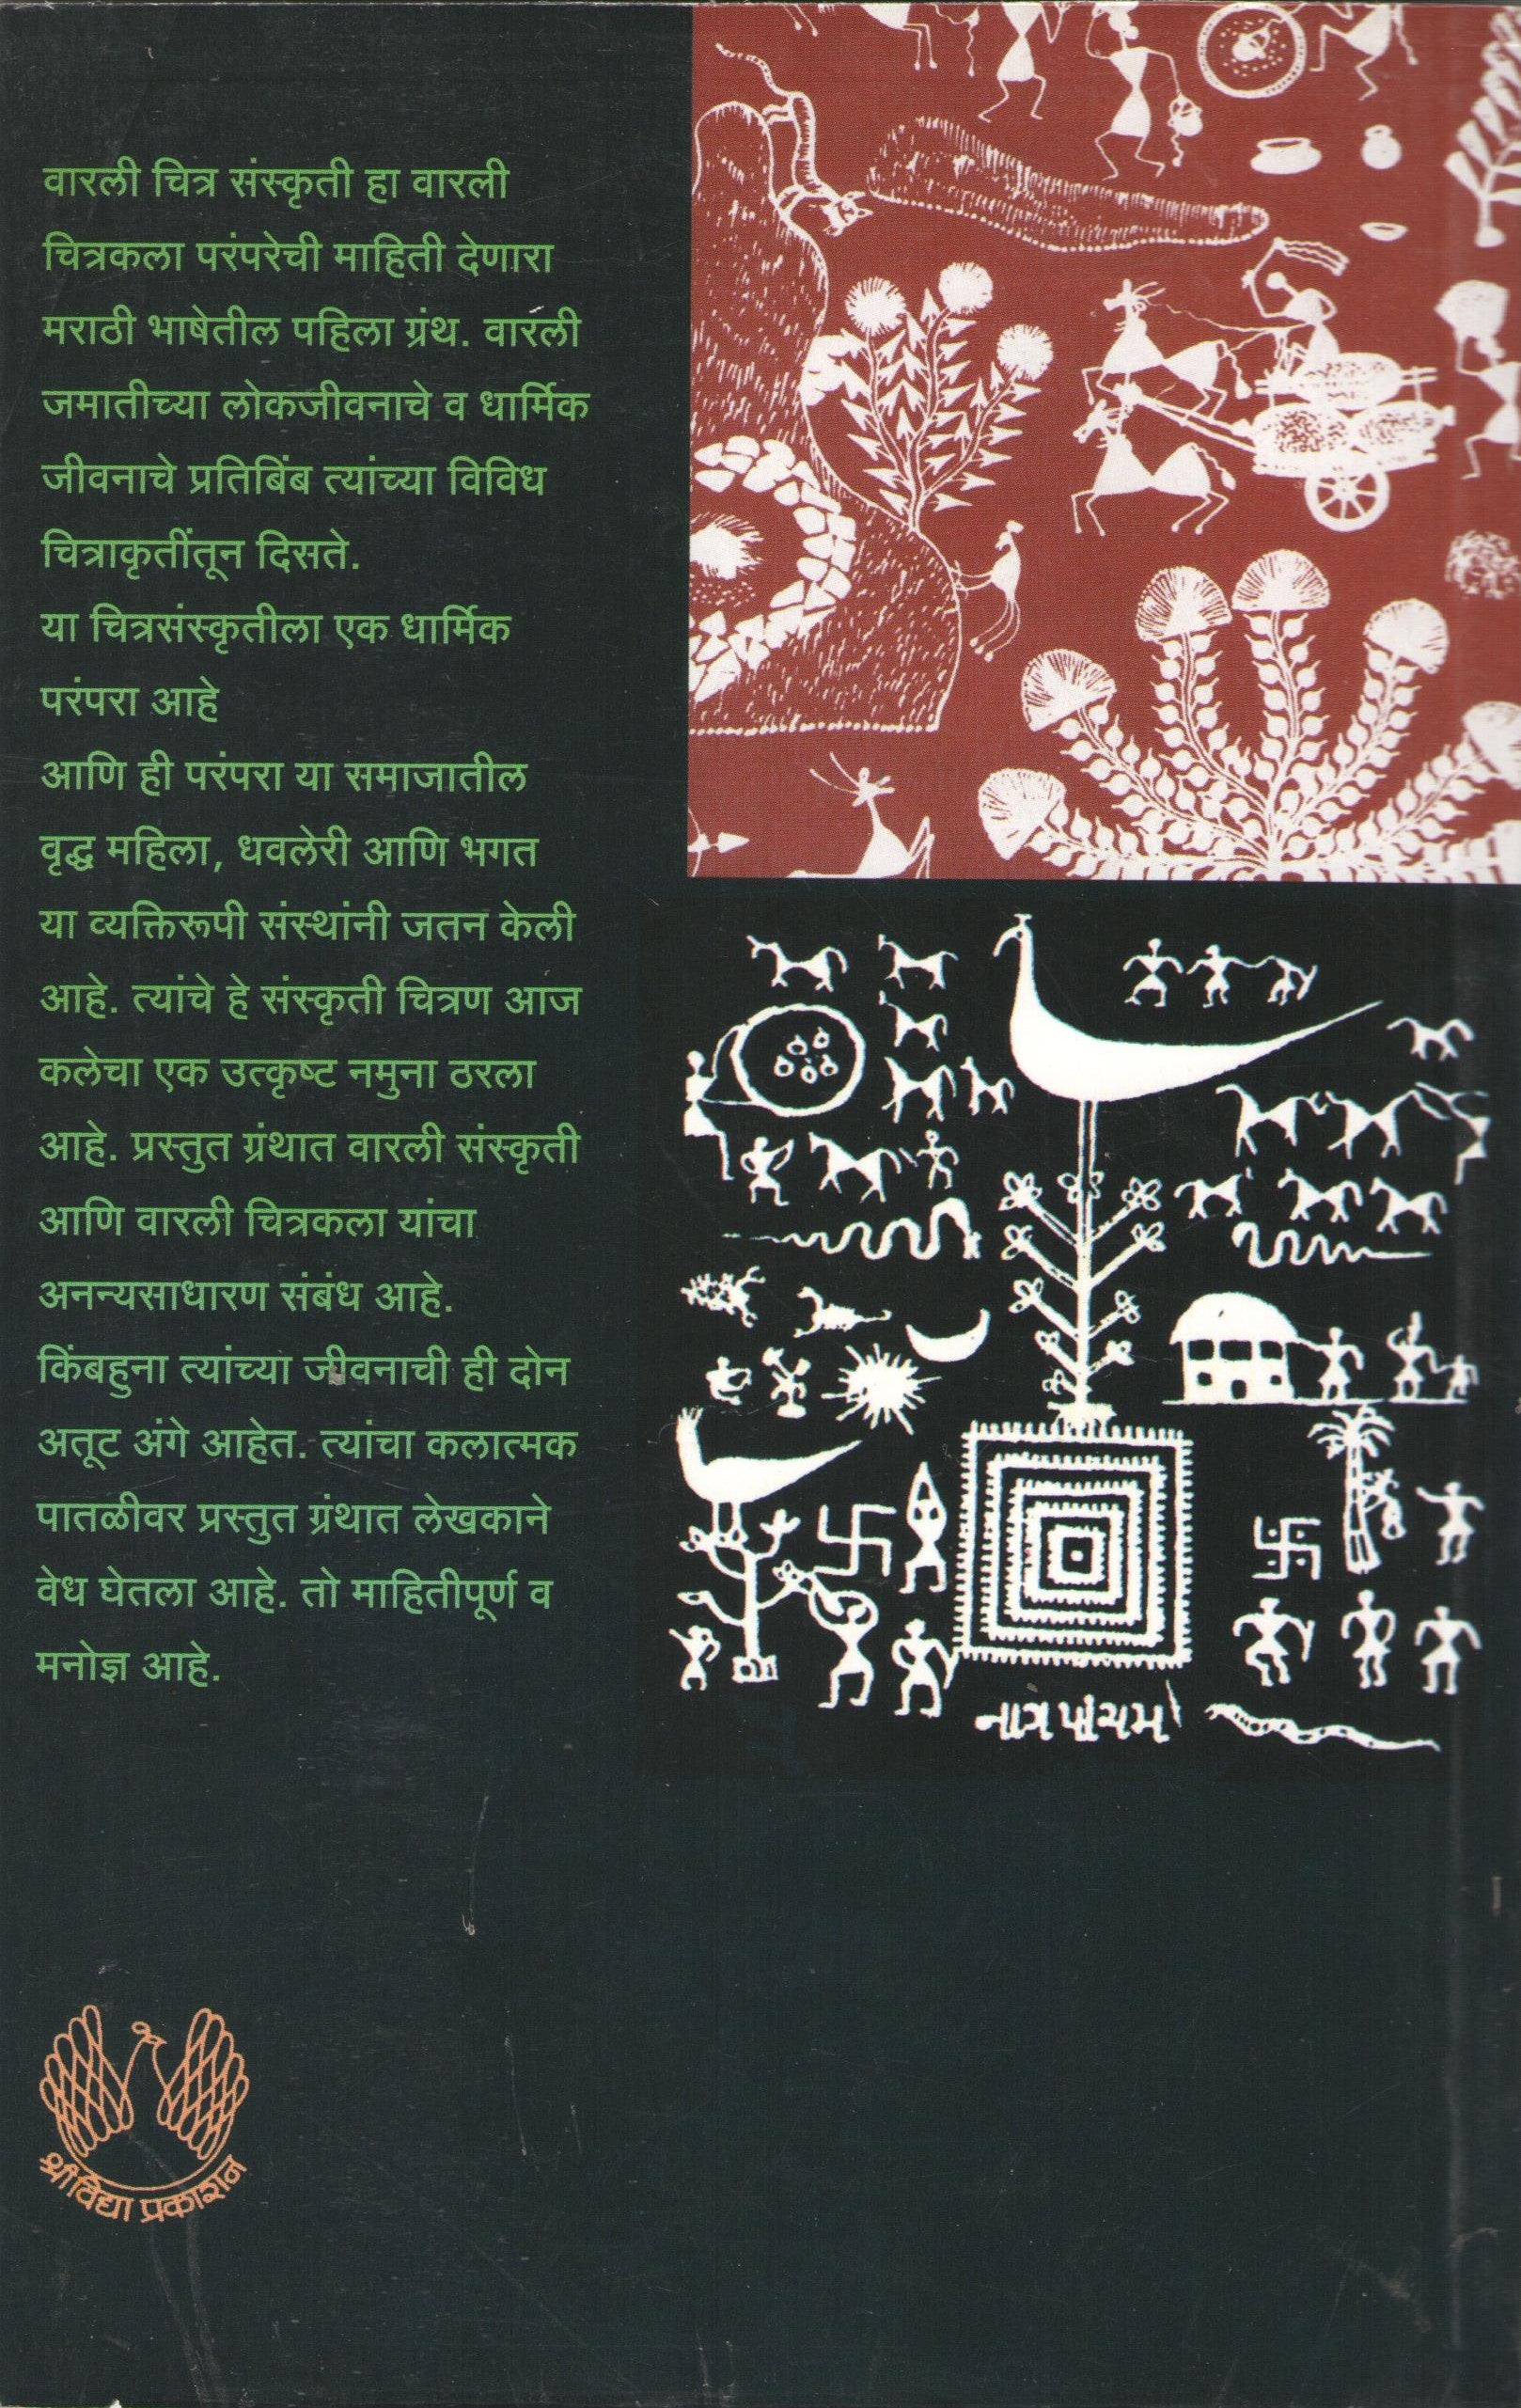 वारली चित्र संस्कृती हा वारली
चित्रकला परंपरेची माहिती देणारा
मराठी भाषेतील पहिला ग्रंथ. वारली
जमातीच्या लोकजीवनाचे व धार्मिक
जीवनाचे प्रतिबिंब त्यांच्या विविध
चित्राकृतींतून दिसते.
या चित्रसंस्कृतीला एक धार्मिक
परंपरा आहे
आणि ही परंपरा या समाजातील
वृद्ध महिला, धवलेरी आणि भगत
या व्यक्तिरूपी संस्थांनी जतन केली
आहे. त्यांचे हे संस्कृती चित्रण आज
कलेचा एक उत्कृष्ट नमुना ठरला
आहे. प्रस्तुत ग्रंथात वारली संस्कृती
आणि वारली चित्रकला यांचा
अनन्यसाधारण संबंध आहे.
किंबहुना त्यांच्या जीवनाची ही दोन
अतूट अंगे आहेत. त्यांचा कलात्मक
पातळीवर प्रस्तुत ग्रंथात लेखकाने
वेध घेतला आहे. तो माहितीपूर्ण व
मनोज्ञ आहे.
નાગ પાંચમ
श्रीविद्या प्रकाशन